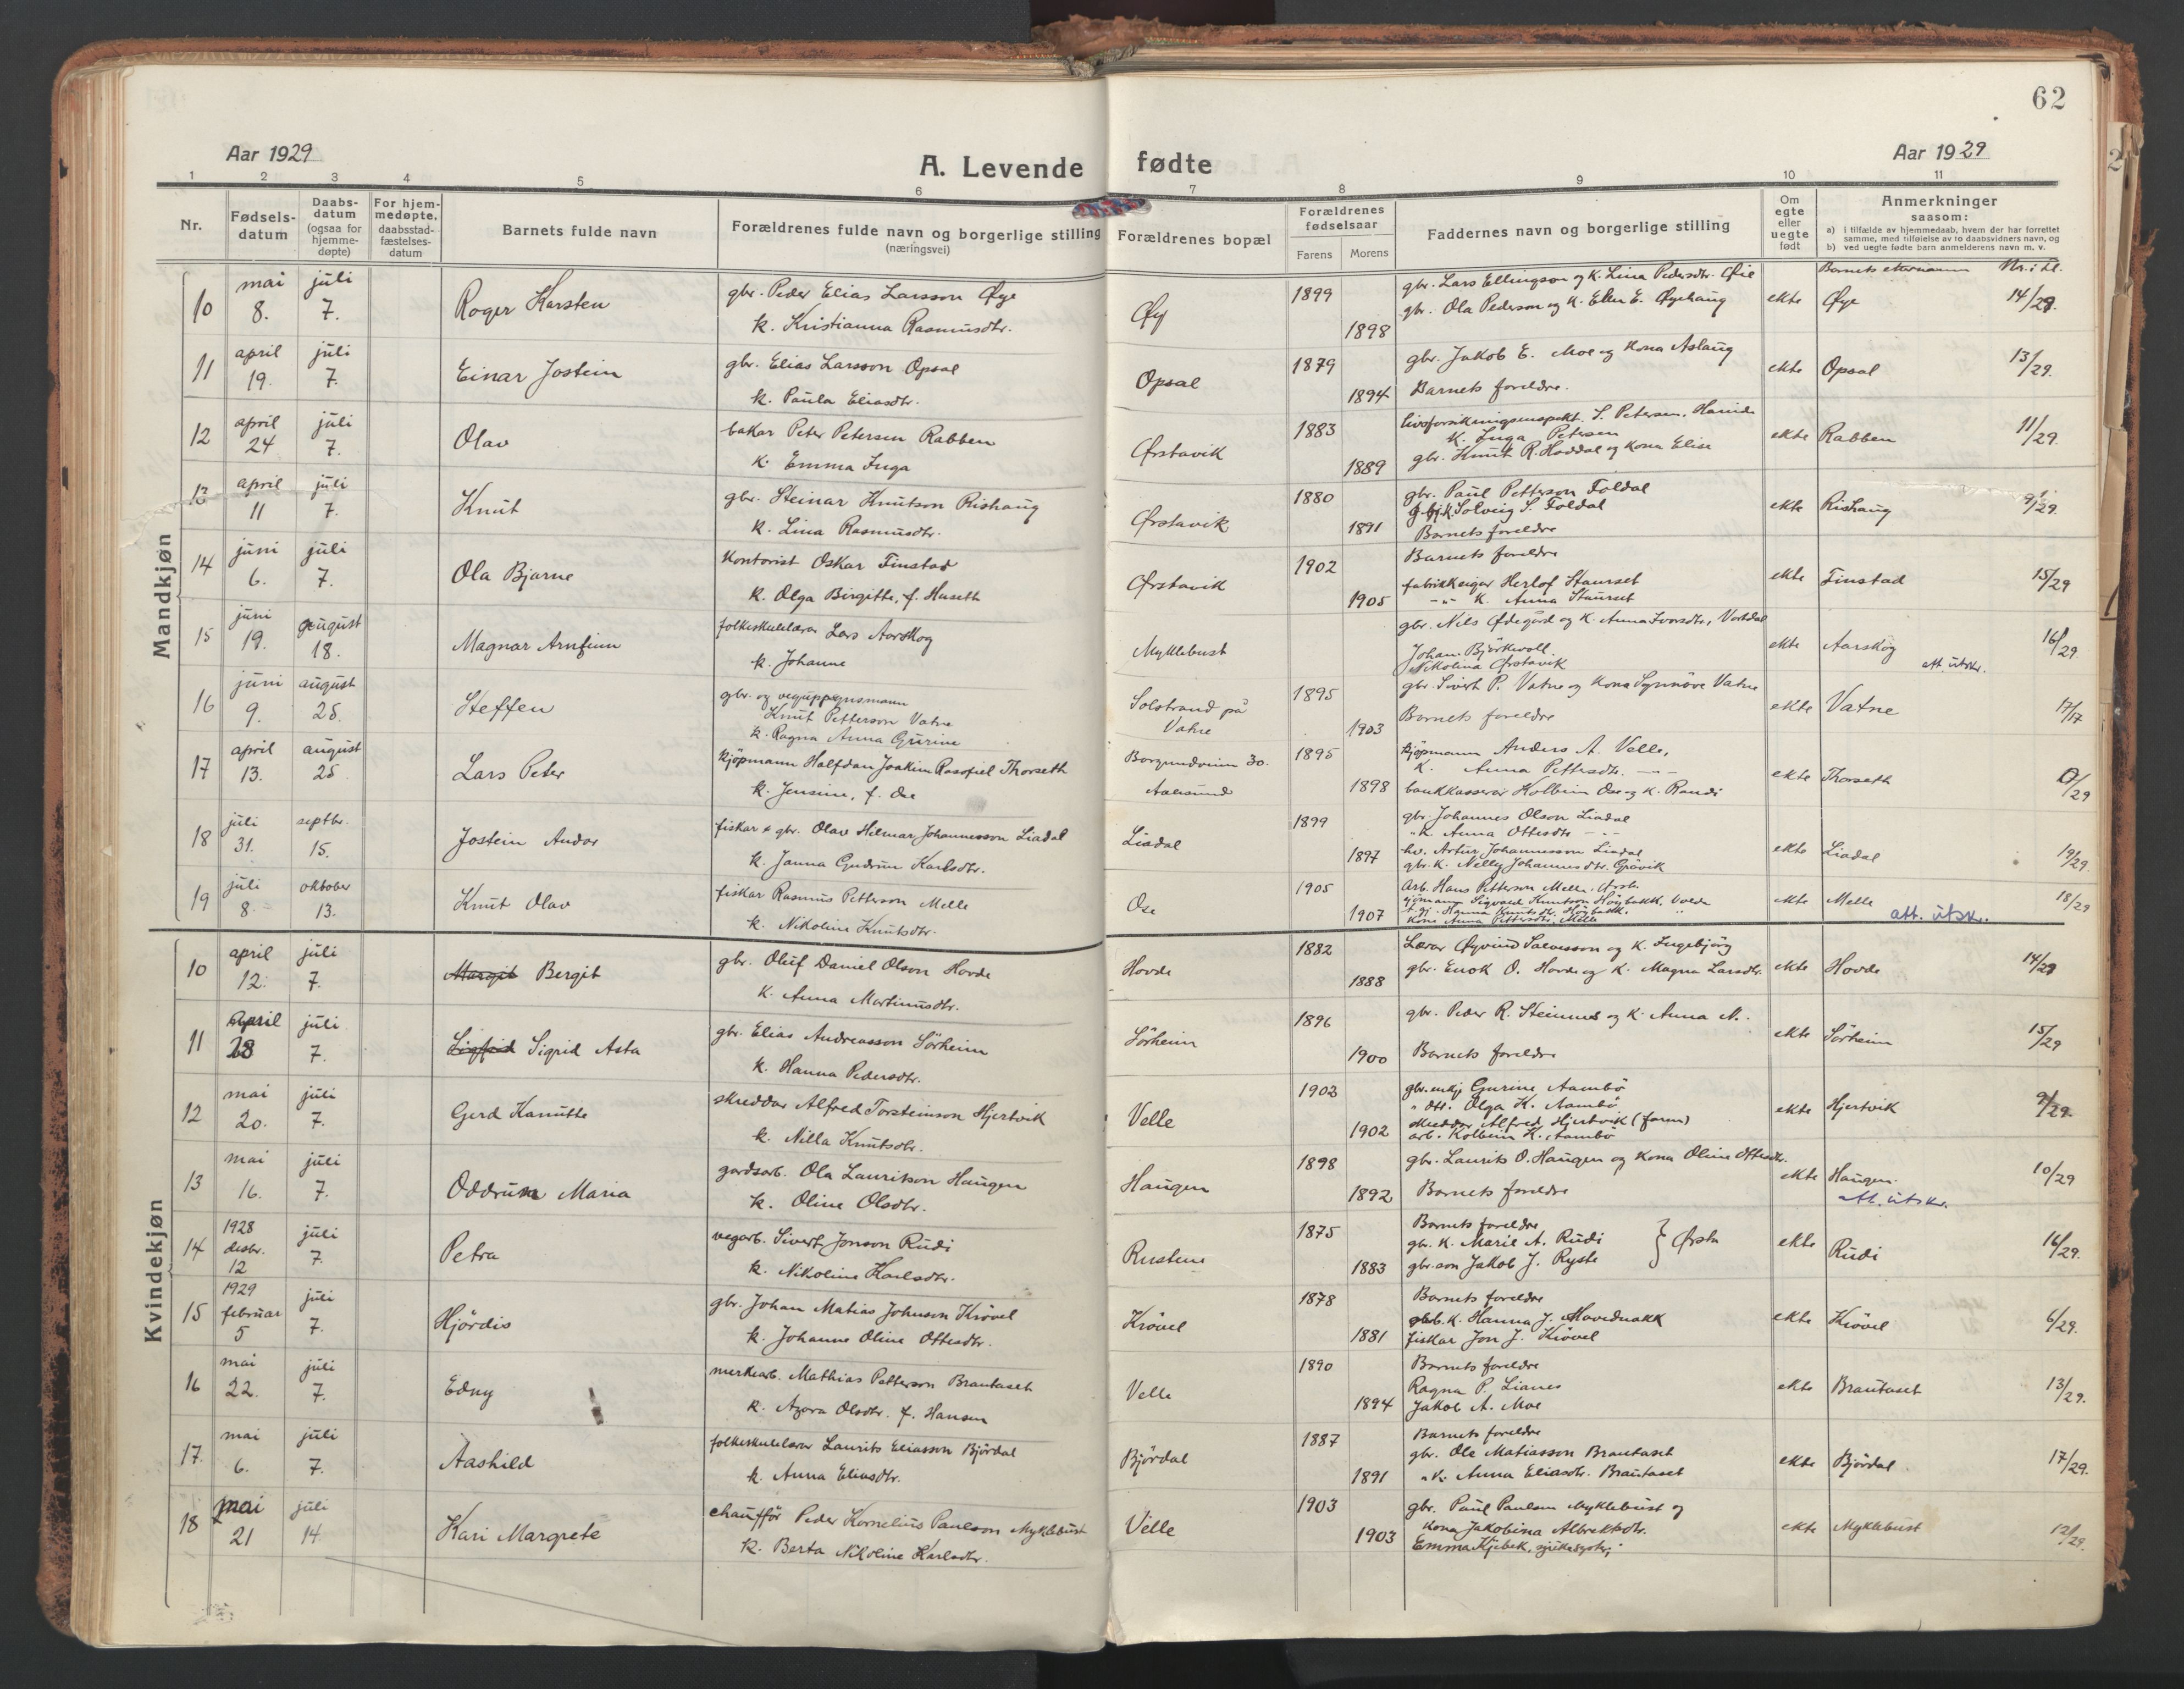 62
Aar 1929
A. Levende fødte
Aar 1929
1 2 3 4 5 6 7 8 9 10 11
Nr.
Fødsels-
datum
Daabs-
datum
(ogsaa for
hjemme-
døpte)
For hjem-
medøpte,
daabsstad-
fæstelses-
datum
Barnets fulde navn
Forældrenes fulde navn og borgerlige stilling
(næringsvei)
Forældrenes bopæl
Forældrenes
fødselsaar
Farens Morens
Faddernes navn og borgerlige stilling
Om
egte
eller
uegte
født
Anmerkninger
saasom:
a) i tilfælde av hjemmedaab, hvem der har forrettet
samme, med tilføielse av to daabsvidners navn, og
b) ved uegte fødte barn anmelderens navn m. v.
Mandkjøn
Barnets etternamn Nr. i
10 mai 8. juli 7. Roger Karsten
gbr. Peder Elias Larsson Øye
k. Kristianna Rasmusdtr.
Øy 1899 1898
gbr. Lars Ellingson og K. Lina Pedersdtr. Øie
gbr. Ola Pederson og K. Ellen E. Øyehaug
ekte Øye 14/29.
11 april 19. juli 7. Einar Jostein
gbr. Elias Larsson Opsal
k. Paula Eliasdtr.
Opsal 1879 1894
gbr. Jakob E. Moe og kona Aslaug
Barnets foreldre.
ekte Opsal 13/29.
12 april 24 juli 7. Olav
bakar Peter Petersen Rabben
k. Emma Inga
Ørstavik 1883 1889
livsforsikringsinspekt. S. Petersen,
K. Inga Petersen
gbr. Knut R. Hovdal og kona Elise
ekte Rabben 11/29.
13 april 11 juli 7. Knut
gbr. Steinar Knutson Rishaug
k. Lina Rasmusdtr.
Ørstavik 1880 1891
gbr. Paul Petterson Foldal
Solveig S. Foldal
Barnets foreldre
ekte Rishaug 9/29.
14 juni 6. juli 7. Ola Bjarne
Kontorist Oskar Finstad
k. Olga Birgitte, f. Huseth
Ørstavik 1902 1905
Barnets foreldre
fabrikkeigar Herlof Staurset
-"- K. Anna Staurset
ekte Finstad 15/29
15 juni 19. august 18. Magnar Arnfinn
folkeskulelærar Lars Aarskog
k. Johanne
Myklebust
gbr. Nils Ødegård og K. Anna Ivarsdtr, Vartdal
Johan. Björkavoll
Nikolina Ørstavik
ekte Aarskog att. utskr. 16/29.
16 juni 9. august 25. Steffen
gbr. og veguppsynsmann
Knut Petterson Vatne
k. Ragna Anna Gurine
Solstrand på
Vatne
1895 1903
gbr. Sivert P. Vatne og kona Synnöve Vatne
Barnets foreldre
ekte Vatne 17/17
17 april 13. august 25. Lars Peter
kjöpmann Halfdan Joakim Rasofiel Thorseth
k. Jensine, f. Ose
Borgundveien 30.
Aalesund
1895 1898
kjöpmann Anders A. Velle,
K. Anna Pettersdtr. -"-
bankkasserar Kolbein Ose og k. Randi
ekte Thorseth 0/29
18 juli 31. septbr. 15. Jostein Andor
fiskar & gbr. Olav Hilmar Johannesson Liadal
k. Janna Gudrun Karlsdtr.
Liadal 1899 1897
gbr. Johannes Olson Liadal
" k. Anna Ottesdtr -"-
Artur Johannesson Liadal
gbr. k. Nelly Johannesdtr. Grövik
ekte Liadal 19/29.
19 juli 8. oktober 13. Knut Olav
fiskar Rasmus Petterson Melle
k. Nikoline Knutsdtr.
Ose 1905 1907
Arb. Hans Petterson Melle,
Sigvald Knutson Høgbakk. Volda
Hanna Knutsdtr. Høgbakk. "
kona Anna Pettersdtr. Melle
ekte Melle att. utskr. 18/29
Kvindekjøn
10 april 12. juli 7. Margit Bergit
gbr. Oluf Daniel Olson Hovde
k. Anna Martinusdtr.
Hovde 1882 1888
Lærar Øyvind Salvesson og K. Ingebjörg
gbr. Enok O. Hovde og k. Magna Larsdtr.
ekte Hovde 14/29
11 april 28 juli 7. Sigfrid Sigrid Asta
gbr. Elias Andreasson Sörheim
k. Hanna Pedersdtr.
Sörheim 1896 1900
gbr. Peder R. Steinnes og k. Anna N.
Barnets foreldre
ekte Sörheim 15/29
12 mai 20. juli 7. Gerd Kanutte
skreddar Alfred Torsteinson Hjertvik
k. Nilla Knutsdtr.
Velle 1902 1902
gbr. enkj. Gurine Aambö
" dtr. Olga K. Aambö
skreddar Alfred Hjertvik (faren)
arb. Kolbein K. Aambö
ekte Hjertvik 9/29.
13 mai 16. juli 7. Oddrun Maria
gardsarb. Ola Lauritson Haugen
k. Oline Olsdtr.
Haugen 1898 1892
gbr. Laurits O. Haugen og kona Oline Ottesdtr.
Barnets foreldre
ekte Haugen. att. utskr. 10/29
14 1928 desbr. 12 juli 7. Petra
vegarb. Sivert Jonson Rudi
k. Nikoline Karlsdtr.
Rustene 1875 1883
Barnets foreldre
gbr. k. Marie A. Rudi
gbr. son Jakob J. Ryste
} Ørsta
ekte Rudi 16/29.
15 1929 februar 5 juli 7. Hjördis
gbr. Johan Matias Johnson Krövel
k. Johanne Oline Ottesdtr.
Krövel 1878 1881
Barnets foreldre
k. Hanna J. Hovednakk
fiskar Jon J. Krövel
ekte Krövel 6/29.
16 mai 22. juli 7. Edny
merkearb. Mathias Petterson Brautaset
k. Azora Olsdtr. f. Hansen
Velle 1890 1894
Barnets foreldre
Ragna P. Lianes
Jakob A. Moe
ekte Brautaset 13/29.
17. mai 6. juli 7. Aashild
folkeskulelærar Laurits Eliasson Björdal
k. Anna Eliasdtr.
Björdal 1887 1891
Barnets foreldre
gbr. Ole Matiasson Brautaset
" k. Anna Eliasdtr. Brautaset
ekte Björdal 17/29.
18 mai 21 juli 14 Kari Margrete
chaufför Peder Kornelius Paulson Myklebust
k. Berta Nikoline Karlsdtr.
Velle 1903 1903
gbr. Paul Paulson Myklebust og
kona Jakobina Albrektsdtr.
Emma Kjebek,
ekte Myklebust 12/29.